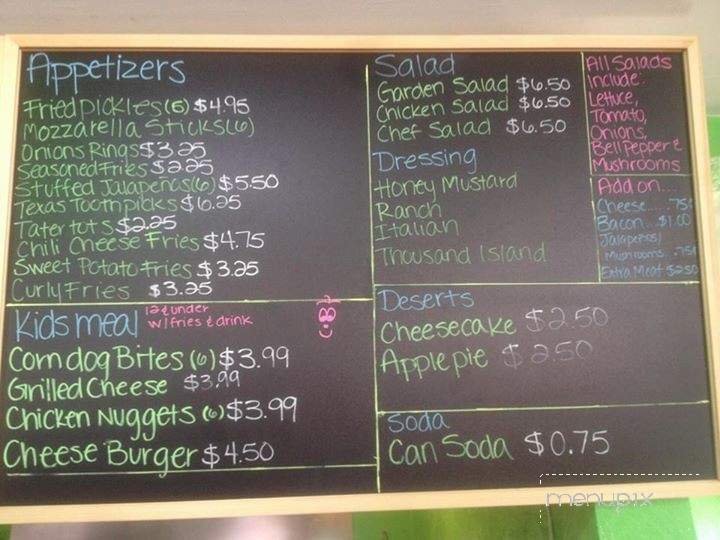 Appetizers
Fried pickles (5) $4.95
Mozzarella Sticks (6)
Onions Rings $3.25
Seasoned Fries $2.25
Stuffed Jalapenas (6) $5.50
Texas Toothpicks $6.25
Tater tots $2.25
Chili Cheese Fries $4.75
Sweet Potato Fries $3.25
Curly Fries $3.25
Kids meal
12 & under
w/ fries & drink
Corn dog Bites (6) $3.99
Grilled Cheese $3.99
Chicken Nuggets (6) $3.99
Cheese Burger $4.50
Salad
Garden Salad $6.50
Chicken Salad $6.50
Chef Salad $6.50
Dressing
Honey Mustard
Ranch
Italian
Thousand Island
All Salads
Include:
Lettuce,
Tomato,
Onions,
Bell Pepper &
Mushrooms
Add on....
Cheese.....75¢
Bacon...$1.00
Jalapenos/
Mushrooms..75¢
Extra Meat $2.50
Deserts
Cheesecake $2.50
Apple pie $2.50
Soda
Can Soda $0.75
menupix